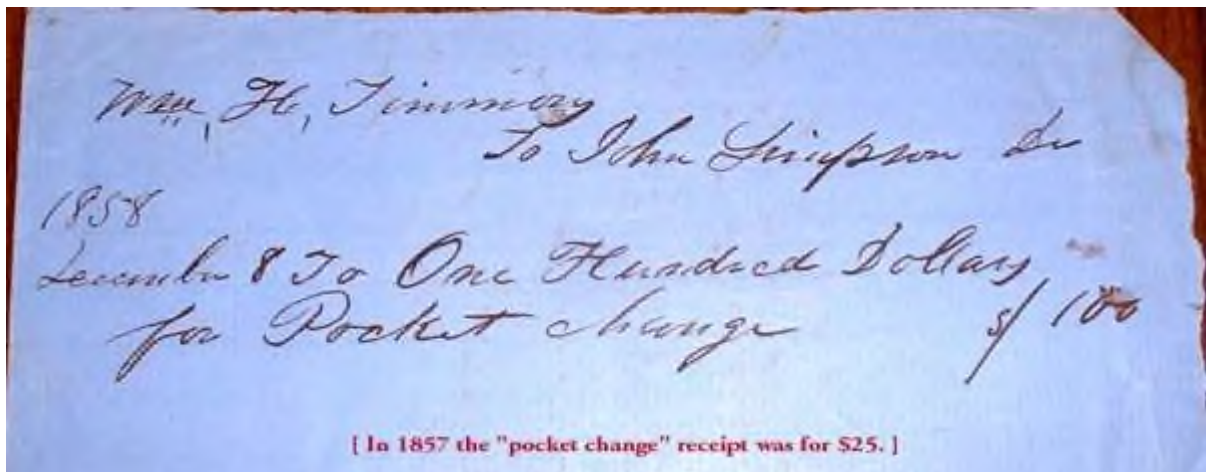 Wm, H, Timmony
To John Simpson Dr
1858
December 8 To One Hundred Dollars
for Pocket change $/ 100
[ In 1857 the "pocket change" receipt was for $25. ]